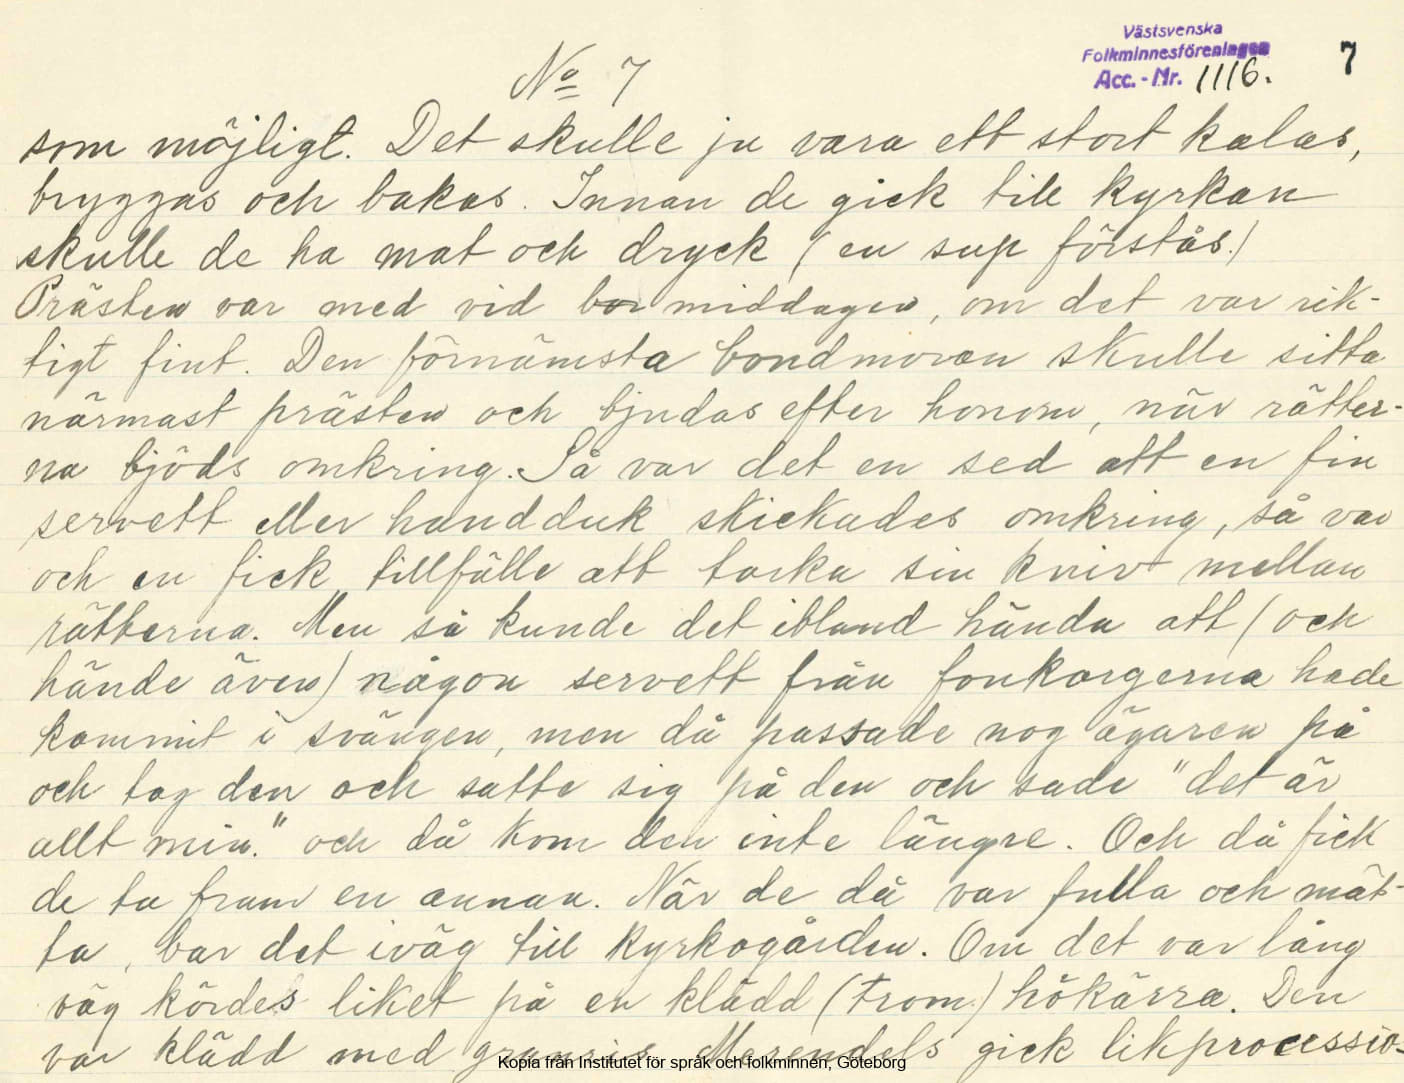 Västsvenska
Folkminnesföreningen
Acc. - Nr. 1116.
7
No 7
som möjligt. Det skulle ju vara ett stort kalas,
bryggas och bakas. Innan de gick till kyrkan
skulle de ha mat och dryck (en sup förstås.)
Prästen var med vid bor middagen, om det var rik-
tigt fint. Den förnämsta bondmoran skulle sitta
närmast prästen och bjudas efter honom, när rätter-
na bjöds omkring. Så var det en sed att en fin
servett eller handduk skickades omkring, så var
och en fick tillfälle att torka sin kniv mellan
rätterna. Men så kunde det ibland hända att (och
hände även) någon servett från fonkorgerna hade
kommit i svängen, men då passade nog ägaren på
och tog den och satte sig på den och sade "det är
allt min." och då kom den inte längre. Och då fick
de ta fram en annan. När de då var fulla och mät-
ta, bar det iväg till kyrkogården. Om det var lång
väg kördes liket på en klädd (from.) hökärra. Den
var klädd med granris. Merendels gick likprocessio-
Kopia från Institutet för språk och folkminnen, Göteborg